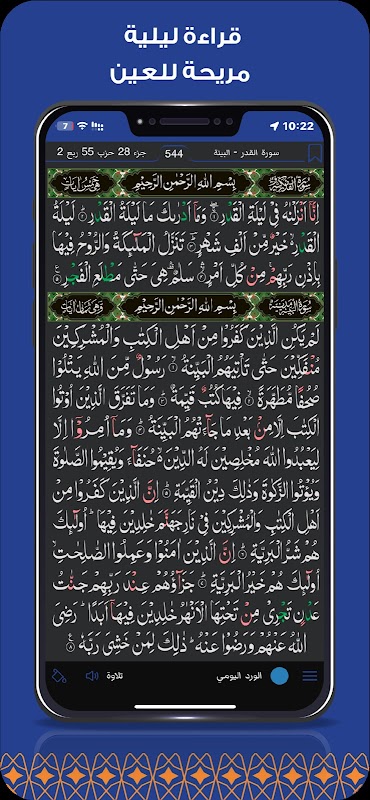 قراءة ليلية
مريحة للعين
10:22
سورة القدر - البينة 544 جزء 28 حزب 55 ربع 2
بِسْمِ اللّٰهِ الرَّحْمٰنِ الرَّحِيْمِ
اِنَّآ اَنْزَلْنٰهُ فِيْ لَيْلَةِ الْقَدْرِ ۝ وَمَآ اَدْرٰىكَ مَا لَيْلَةُ الْقَدْرِ ۝ لَيْلَةُ
الْقَدْرِ ۙ خَيْرٌ مِّنْ اَلْفِ شَهْرٍ ۝ تَنَزَّلُ الْمَلٰٓئِكَةُ وَالرُّوْحُ فِيْهَا
بِاِذْنِ رَبِّهِمْ ۚ مِنْ كُلِّ اَمْرٍ ۝ سَلٰمٌ ۛ هِيَ حَتّٰى مَطْلَعِ الْفَجْرِ ۝
بِسْمِ اللّٰهِ الرَّحْمٰنِ الرَّحِيْمِ
لَمْ يَكُنِ الَّذِيْنَ كَفَرُوْا مِنْ اَهْلِ الْكِتٰبِ وَالْمُشْرِكِيْنَ
مُنْفَكِّيْنَ حَتّٰى تَاْتِيَهُمُ الْبَيِّنَةُ ۝ رَسُوْلٌ مِّنَ اللّٰهِ يَتْلُوْا
صُحُفًا مُّطَهَّرَةً ۝ فِيْهَا كُتُبٌ قَيِّمَةٌ ۝ وَمَا تَفَرَّقَ الَّذِيْنَ اُوْتُوا
الْكِتٰبَ اِلَّا مِنْۢ بَعْدِ مَا جَآءَتْهُمُ الْبَيِّنَةُ ۝ وَمَآ اُمِرُوْٓا اِلَّا
لِيَعْبُدُوا اللّٰهَ مُخْلِصِيْنَ لَهُ الدِّيْنَ ۙ حُنَفَآءَ وَيُقِيْمُوا الصَّلٰوةَ
وَيُؤْتُوا الزَّكٰوةَ وَذٰلِكَ دِيْنُ الْقَيِّمَةِ ۝ اِنَّ الَّذِيْنَ كَفَرُوْا مِنْ
اَهْلِ الْكِتٰبِ وَالْمُشْرِكِيْنَ فِيْ نَارِ جَهَنَّمَ خٰلِدِيْنَ فِيْهَا ۭ اُولٰٓئِكَ
هُمْ شَرُّ الْبَرِيَّةِ ۝ اِنَّ الَّذِيْنَ اٰمَنُوْا وَعَمِلُوا الصّٰلِحٰتِ ۙ
اُولٰٓئِكَ هُمْ خَيْرُ الْبَرِيَّةِ ۝ جَزَآؤُهُمْ عِنْدَ رَبِّهِمْ جَنّٰتُ
عَدْنٍ تَجْرِيْ مِنْ تَحْتِهَا الْاَنْهٰرُ خٰلِدِيْنَ فِيْهَآ اَبَدًا ۭ رَضِيَ
اللّٰهُ عَنْهُمْ وَرَضُوْا عَنْهُ ۭ ذٰلِكَ لِمَنْ خَشِيَ رَبَّهٗ ۝
الورد اليومي تلاوة